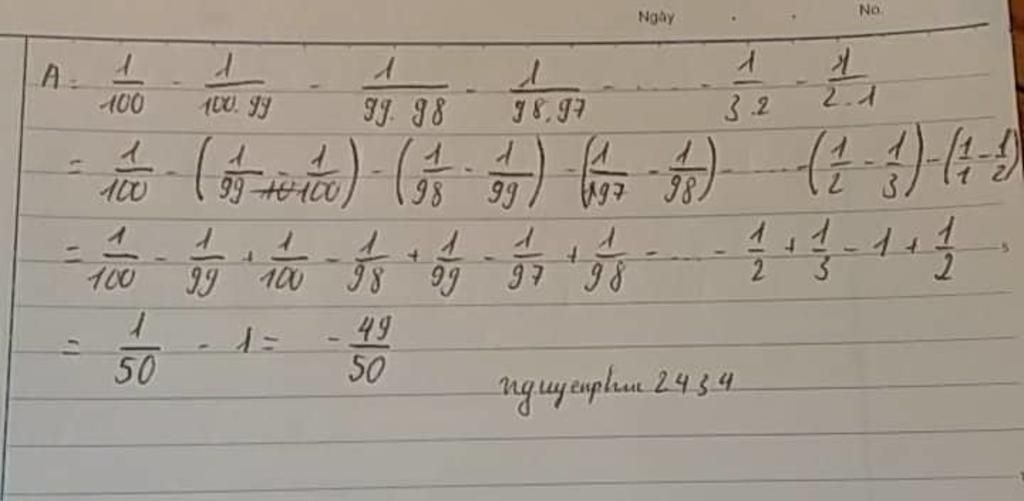 Ngày . . No.
A = 1/100 - 1/100.99 - 1/99.98 - 1/98.97 - ..... - 1/3.2 - 1/2.1
= 1/100 - (1/99 - 1/100) - (1/98 - 1/99) - (1/97 - 1/98) - ..... - (1/2 - 1/3) - (1/1 - 1/2)
= 1/100 - 1/99 + 1/100 - 1/98 + 1/99 - 1/97 + 1/98 - .... - 1/2 + 1/3 - 1 + 1/2
= 1/50 - 1 = - 49/50
nguyenphuc2434